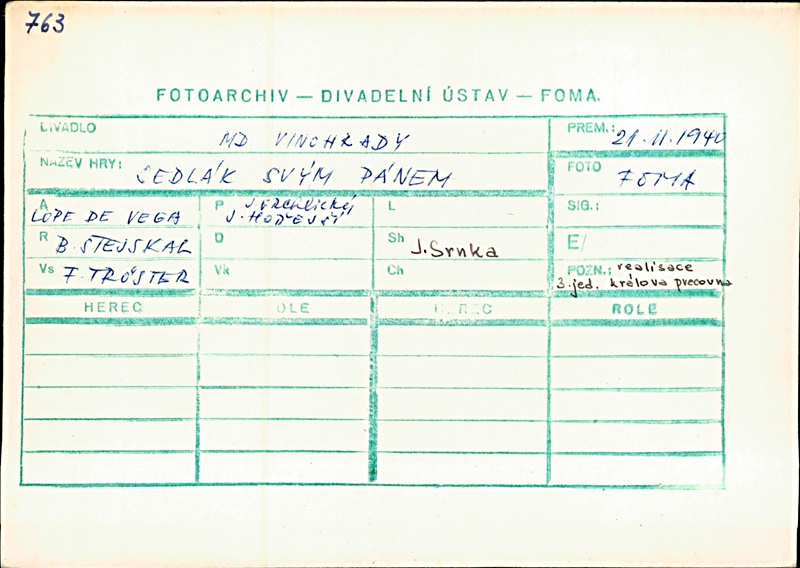 763
FOTOARCHIV — DIVADELNÍ ÚSTAV — FOMA.
DIVADLO MD VINOHRADY PREM.: 21.11.1940
NÁZEV HRY: SEDLÁK SVÝM PÁNEM FOTO FOMA
A LOPE DE VEGA P J. Vrchlický J. HOŘEJŠÍ L SIG.:
R B. STEJSKAL D Sh J. Srnka E/
Vs F. TRÖSTER Vk Ch POZN.: realisace
3. jed. králova pracovna
HEREC ROLE HEREC ROLE